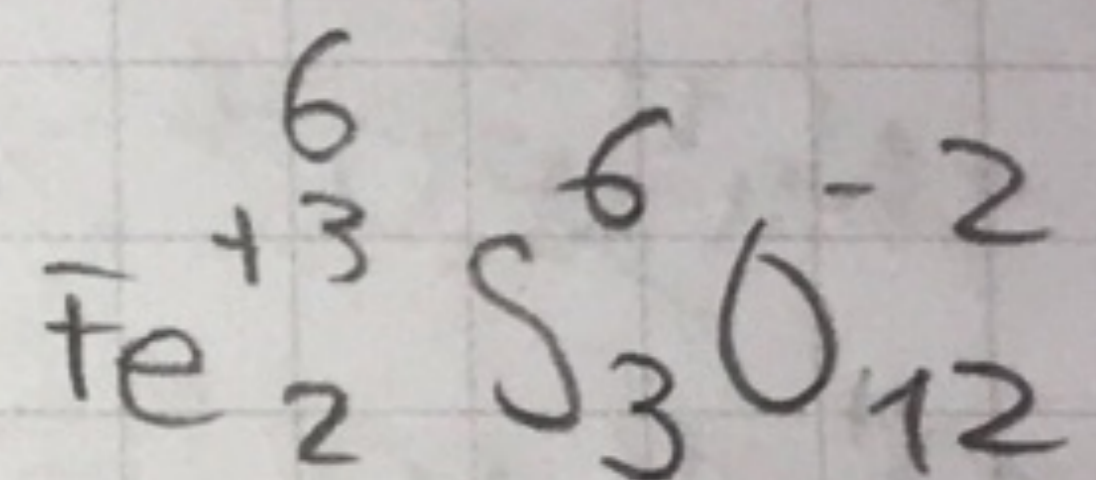 6
Fe₂⁺³ S₃⁶ O₁₂⁻²